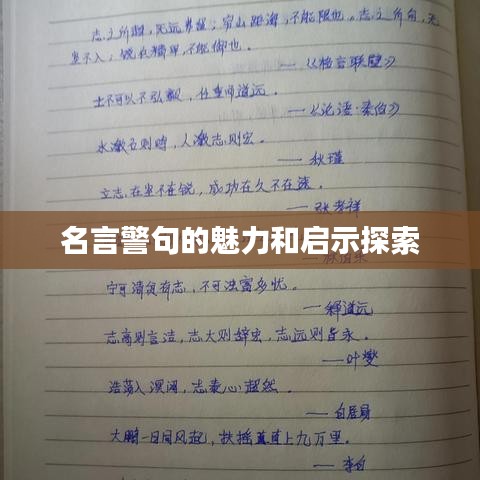 志之所趋，无远弗届；穷山距海，不能限也。志之所向，无
坚不入；锐兵精甲，不能御也。
——《格言联璧》
士不可以不弘毅，任重而道远。
——《论语·泰伯》
水激石则鸣，人激志则宏。
——秋瑾
立志在坚不在锐，成功在久不在速。
——张孝祥
名言警句的魅力和启示探索
宁可清贫有志，不可浊富多忧。
——释道远
志高则言洁，志大则辞宏，志远则旨永。
——叶燮
浩荡入溟阔，志泰心超然。
——白居易
大鹏一日同风起，扶摇直上九万里。
——李白